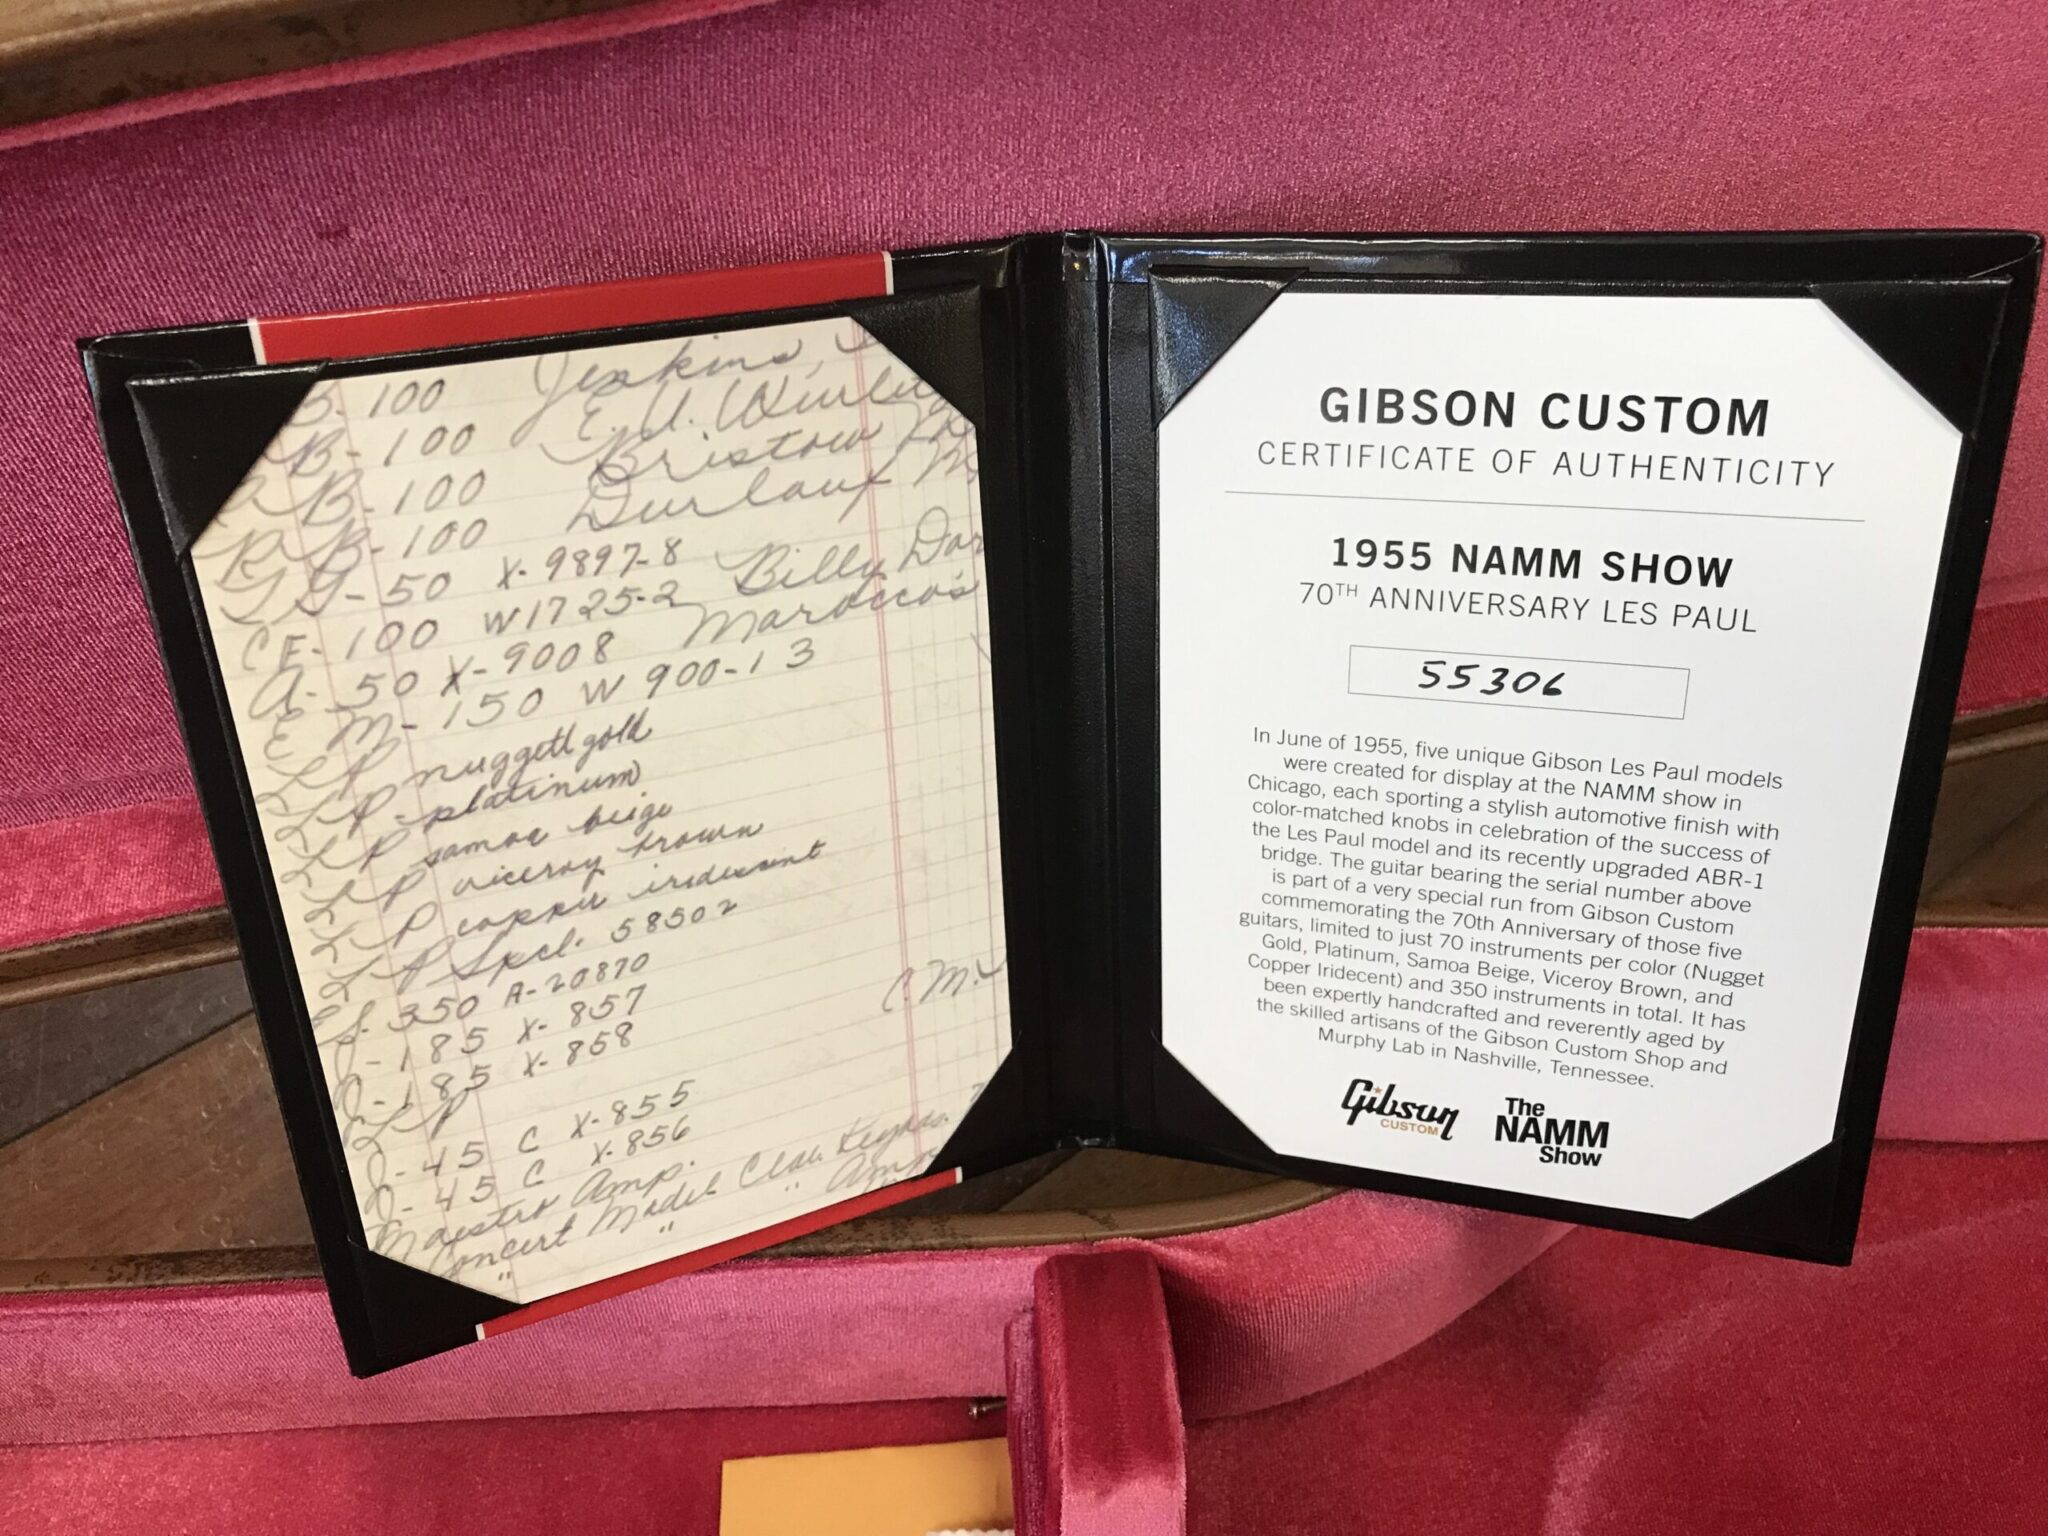 B-100 Jenkins,
B-100 E. U. Wurlit
B-100 Bristow
B-100 Durlauf
50 X-9897-8
CE-100 W1725-2 Billy Dar
A-50 X-9008 Marocco's
E M-150 W 900-13
L P nuggett gold
L P-platinum
L P samoa beige
L P viceroy brown
L P copper iridescent
L P Specl. 58502
ES-350 A-20870
J-185 X-857 C. M.
J-185 X-858
L P
J-45 C X-855
J-45 C X-856
Maestro Amp.
Concert Model Clav. Keybds.
" " " Amp
GIBSON CUSTOM
CERTIFICATE OF AUTHENTICITY
1955 NAMM SHOW
70TH ANNIVERSARY LES PAUL
55306
In June of 1955, five unique Gibson Les Paul models
were created for display at the NAMM show in
Chicago, each sporting a stylish automotive finish with
color-matched knobs in celebration of the success of
the Les Paul model and its recently upgraded ABR-1
bridge. The guitar bearing the serial number above
is part of a very special run from Gibson Custom
commemorating the 70th Anniversary of those five
guitars, limited to just 70 instruments per color (Nugget
Gold, Platinum, Samoa Beige, Viceroy Brown, and
Copper Iridecent) and 350 instruments in total. It has
been expertly handcrafted and reverently aged by
the skilled artisans of the Gibson Custom Shop and
Murphy Lab in Nashville, Tennessee.
Gibson
CUSTOM
The
NAMM
Show